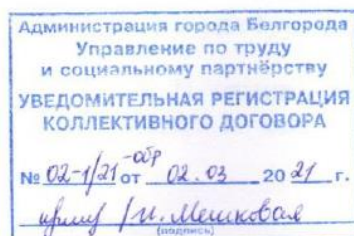 Администрация города Белгорода
Управление по труду
и социальному партнёрству
УВЕДОМИТЕЛЬНАЯ РЕГИСТРАЦИЯ
КОЛЛЕКТИВНОГО ДОГОВОРА
№ 02-1/21-обр от 02.03 2021 г.
/И. Мешковая
(подпись)